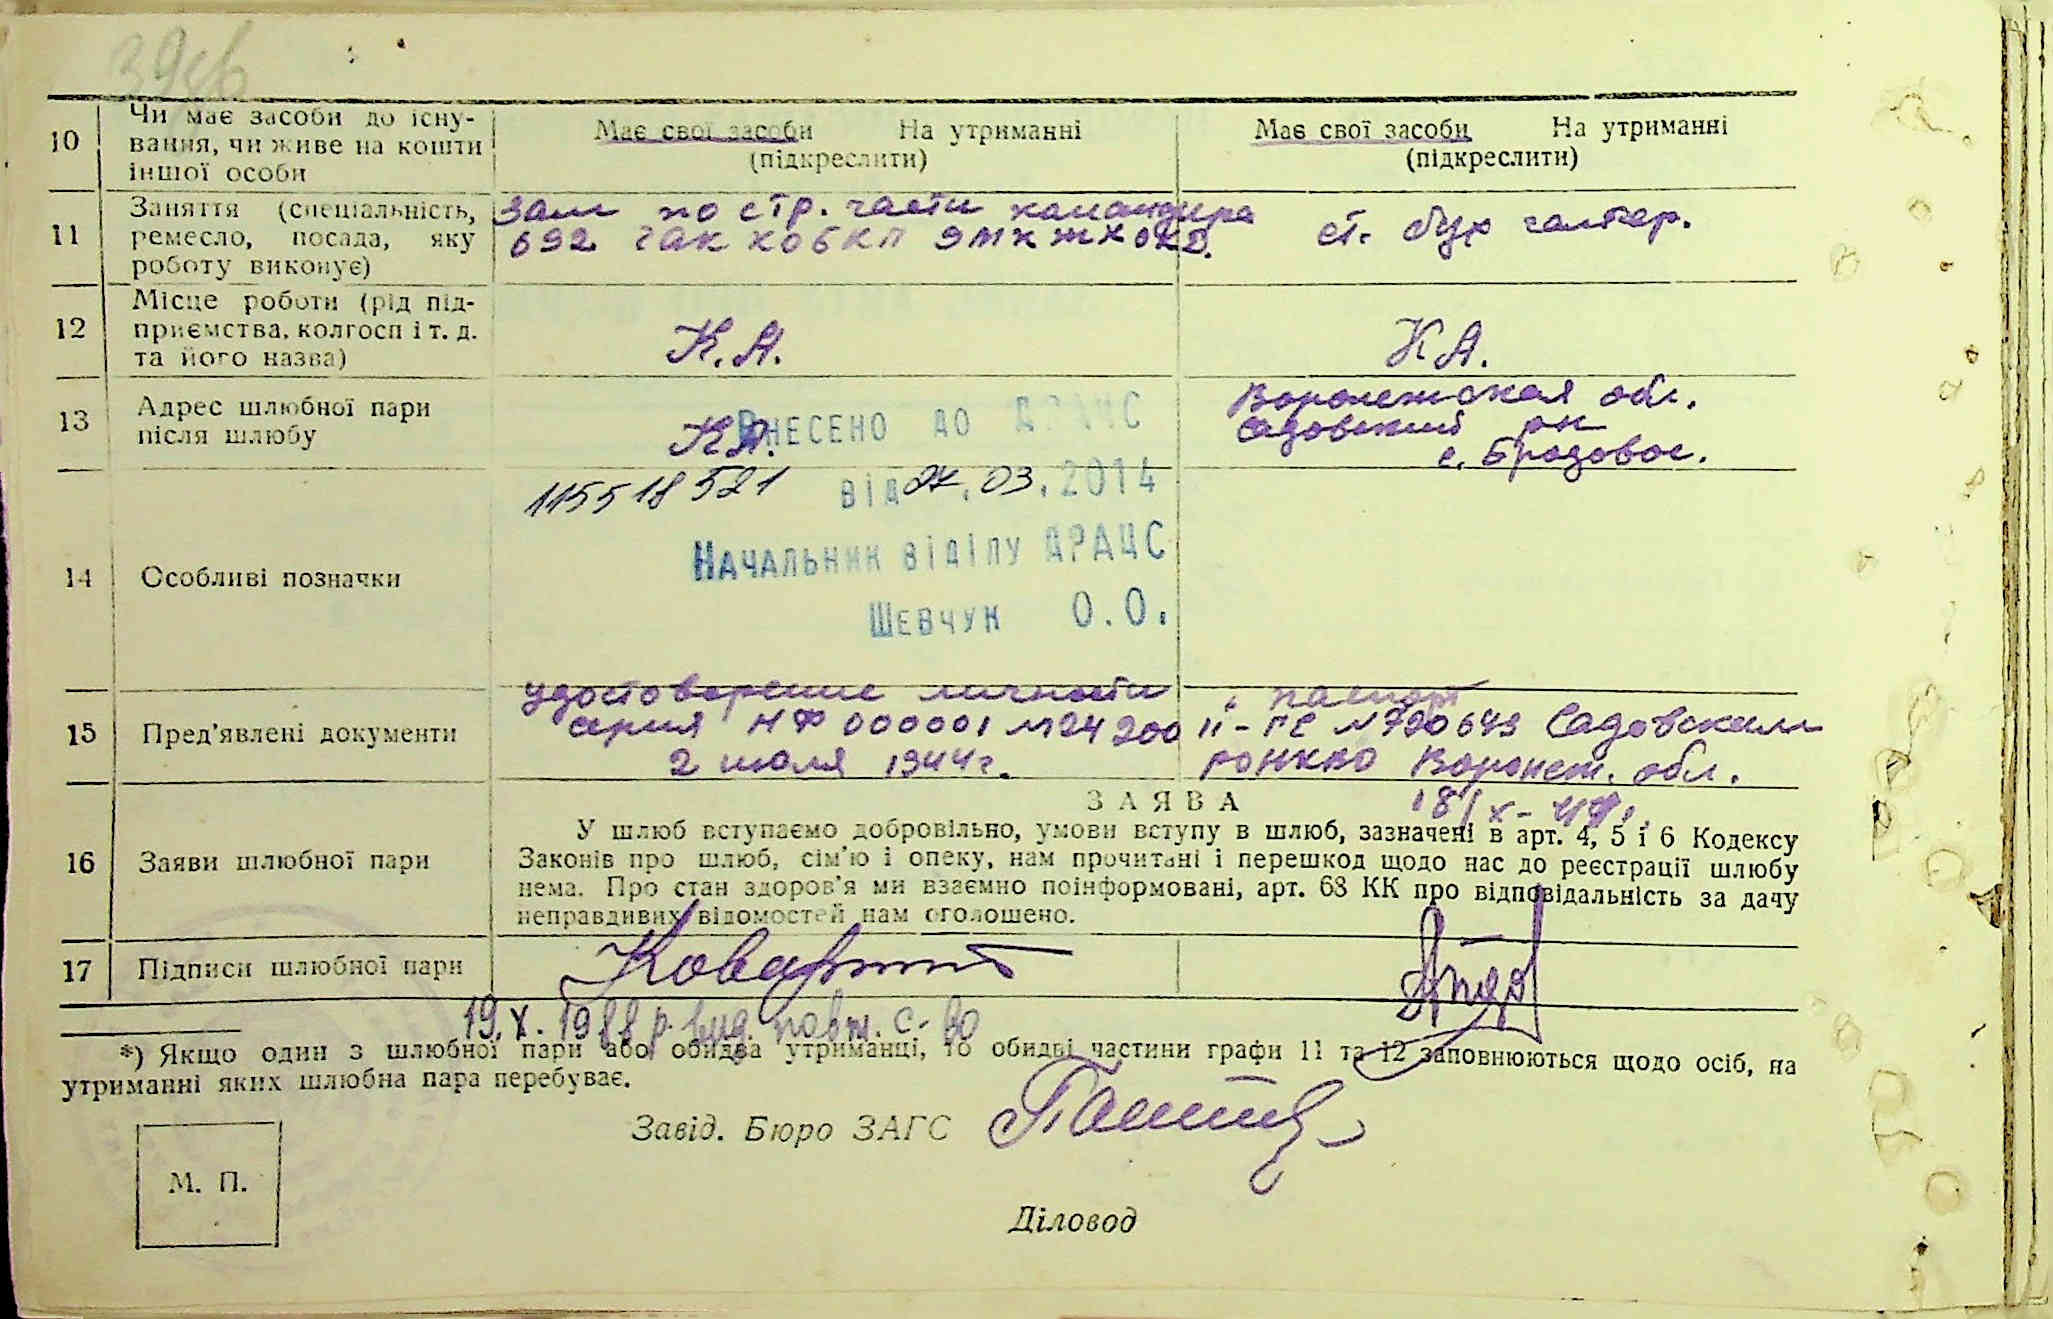 10
Чи має засоби до існу-
вання, чи живе на кошти
іншої особи
Має свої засоби На утриманні
(підкреслити)
Має свої засоби На утриманні
(підкреслити)
11
Заняття (спеціальність,
ремесло, посада, яку
роботу виконує)
Зам по стр. части командира
692
ст. бухгалтер.
12
Місце роботи (рід під-
приємства, колгосп і т. д.
та його назва)
К.А.
К А.
13
Адрес шлюбної пари
після шлюбу
К.А.
Воронежская обл.
Садовский рн
с. Бродовое.
ВНЕСЕНО ДО ДРАЦС
від 27.03.2014
Начальник відділу ДРАЦС
Шевчук О.О.
14
Особливі позначки
115518521
15
Пред'явлені документи
удостоверение личности
серия НФ 000001 №24200
2 июля 1944г.
паспорт
II-ГЕ №790649 Садовским
РОНКВД Воронеж. обл.
16
Заяви шлюбної пари
ЗАЯВА
У шлюб вступаємо добровільно, умови вступу в шлюб, зазначені в арт. 4, 5 і 6 Кодексу
Законів про шлюб, сім'ю і опеку, нам прочитані і перешкод щодо нас до реєстрації шлюбу
нема. Про стан здоров'я ми взаємно поінформовані, арт. 68 КК про відповідальність за дачу
неправдивих відомостей нам оголошено.
17
Підписи шлюбної пари
19.X.1988 р. вид. повт. с-во
*) Якщо один з шлюбної пари або обидва утриманці, то обидві частини графи 11 та 12 заповнюються щодо осіб, на
утриманні яких шлюбна пара перебуває.
Завід. Бюро ЗАГС
М. П.
Діловод